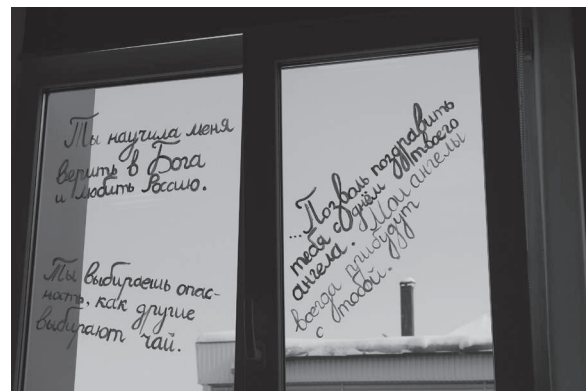 Ты научила меня
верить в Бога
и любить Россию.
Ты выбираешь опас-
ность, как другие
выбирают чай.
...Позволь поздравить
тебя с днём твоего
ангела. Мои ангелы
всегда прибудут
с тобой.